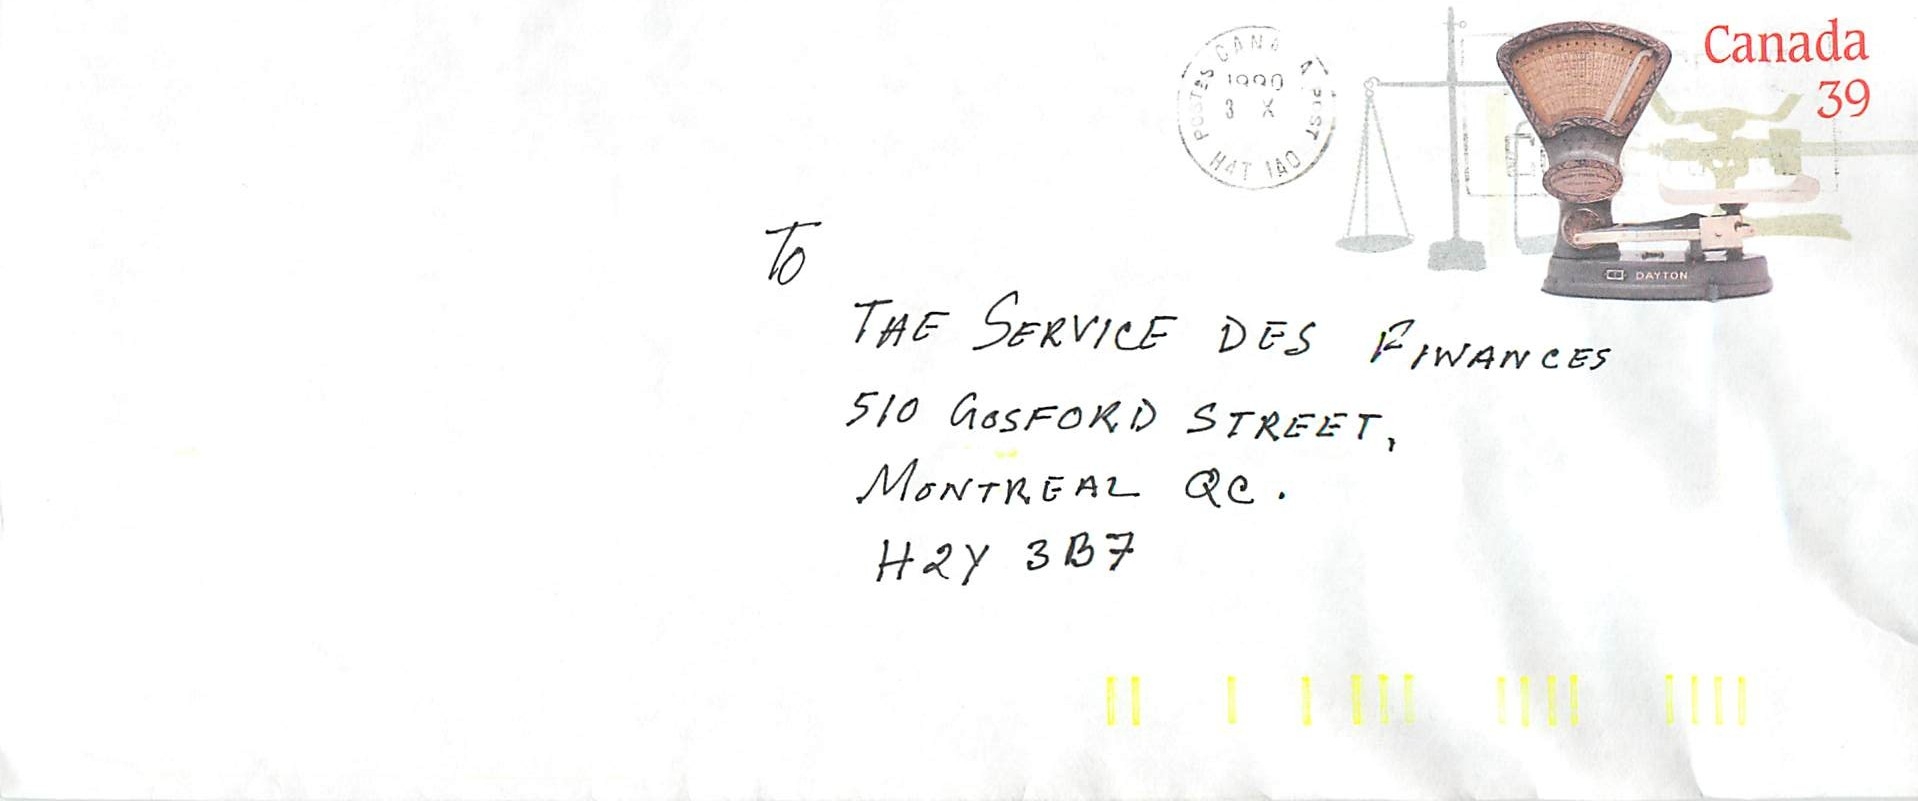 POSTES CANADA POST
1990
3 X
H4T 1A0
Canada
39
DAYTON
To
THE SERVICE DES FINANCES
510 GOSFORD STREET,
MONTREAL QC.
H2Y 3B7